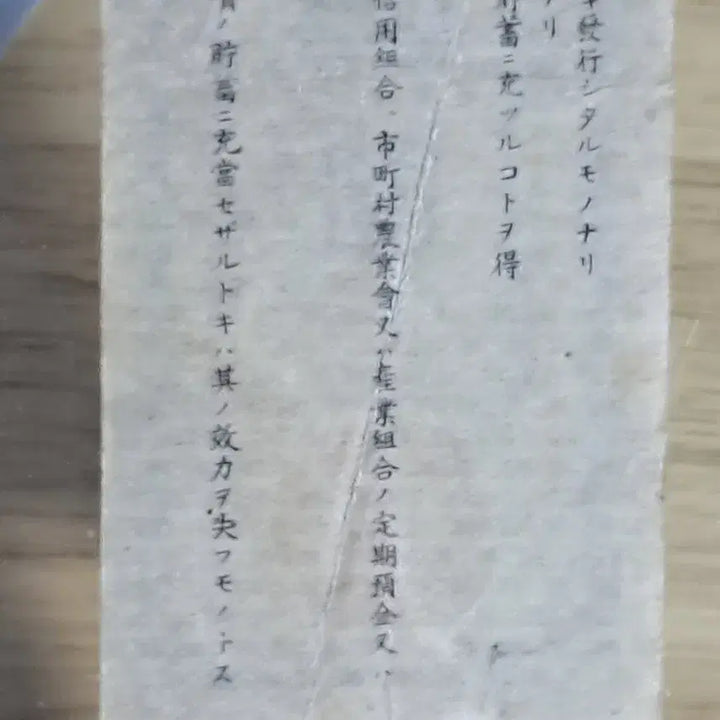 發行シタルモノナリ
ナリ
貯蓄ニ充ツルコトヲ得
信用組合、市町村農業會又ハ産業組合ノ定期預金又ハ
ノ貯蓄ニ充當セザルトキハ其ノ效力ヲ失フモノトス